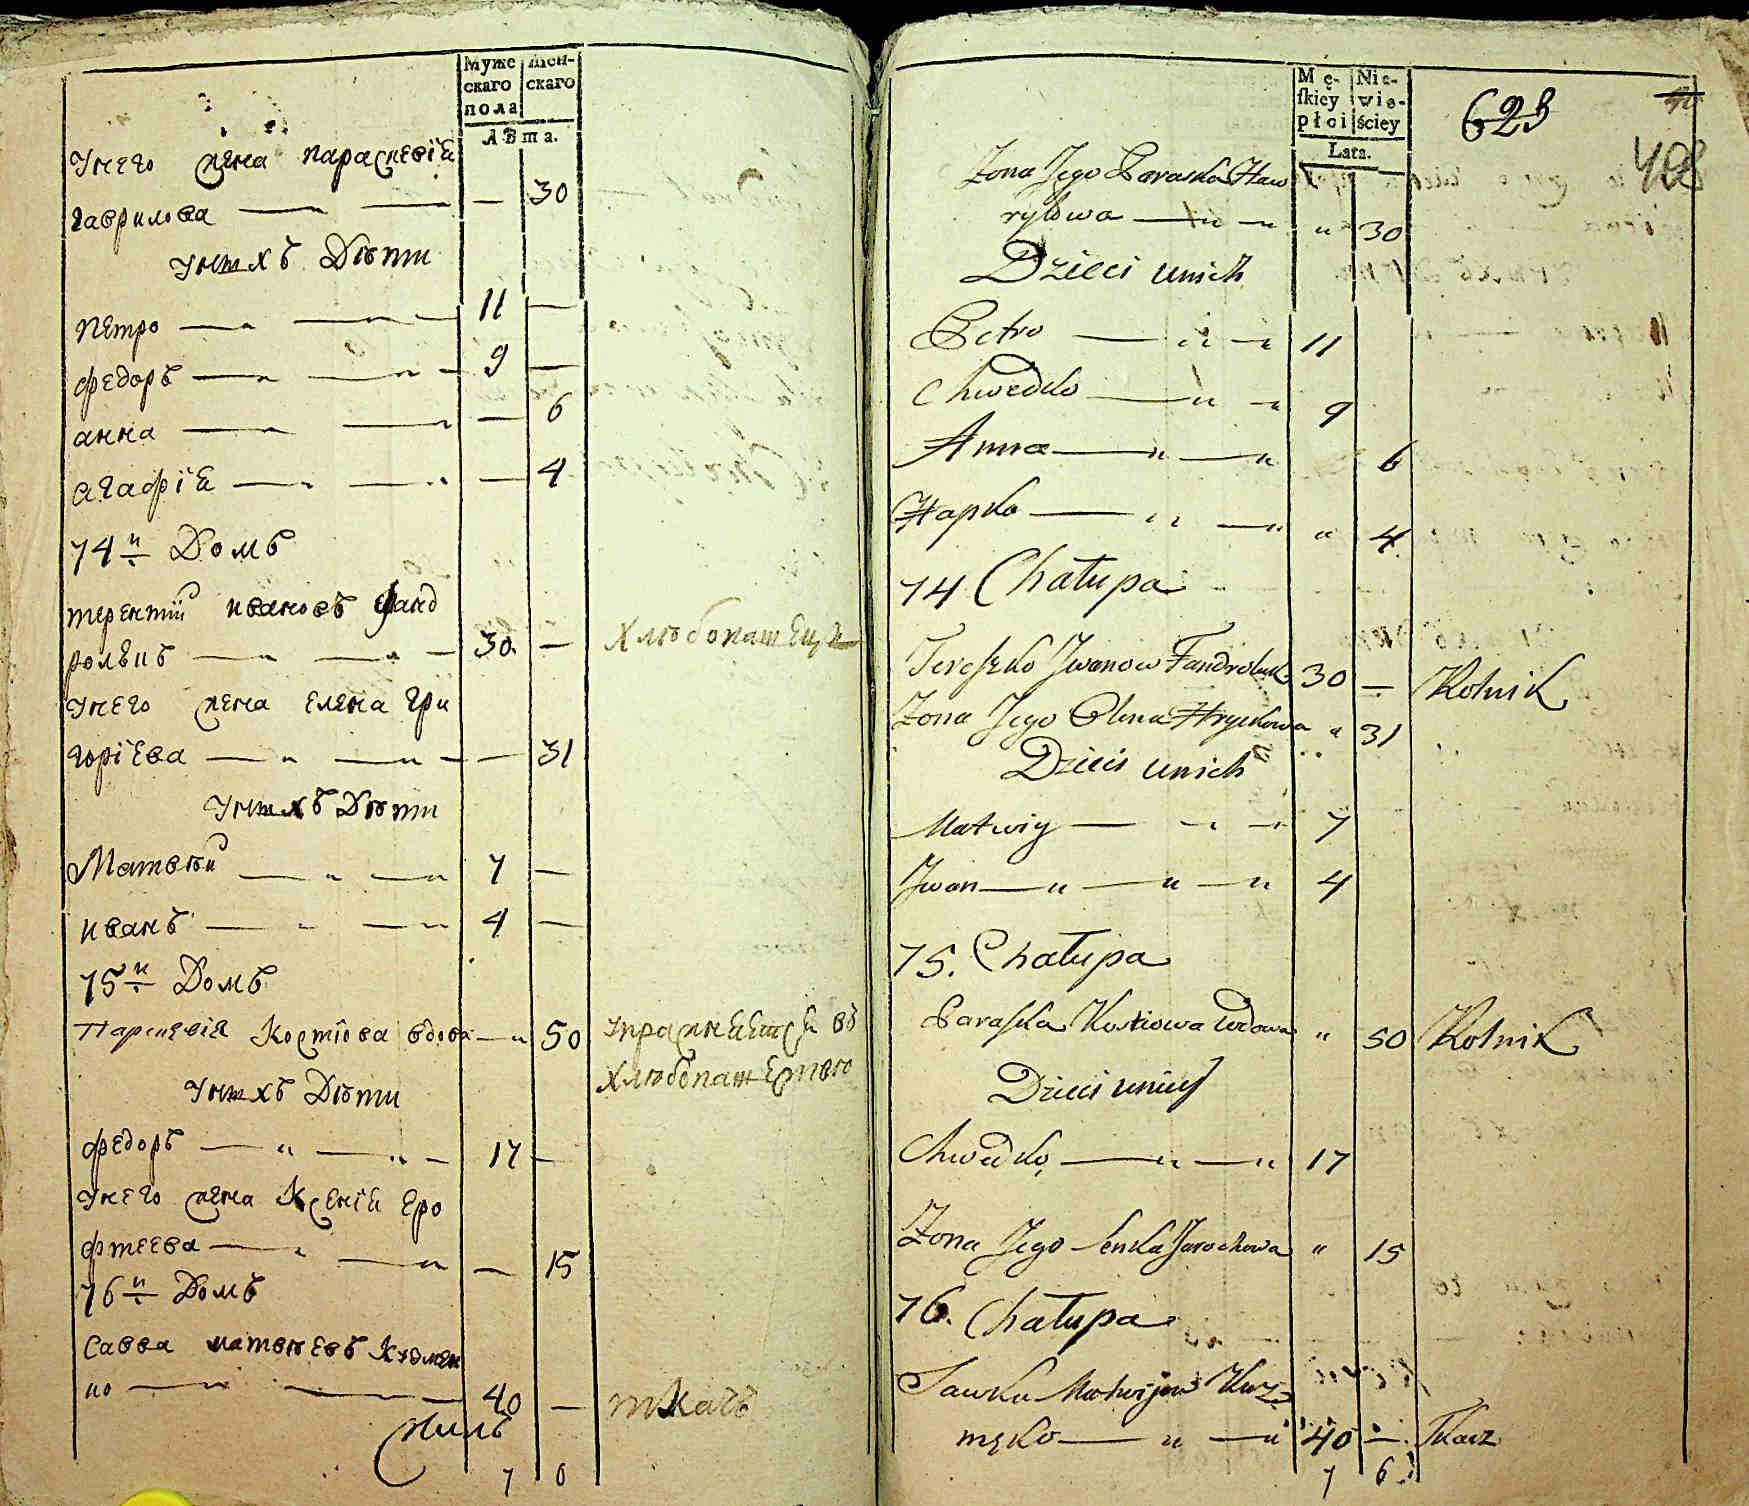 Муже скаго пола
Жен- скаго
Лѣта.
Унего жена параскевіа
гаврилова — — — 30
Унихъ Дѣти
петро — — 11 —
федоръ — — 9 —
анна — — — 6
агафіа — — — 4
74й Домъ
терентій ивановъ фанд
ролецъ — — 30. — Хлѣбопашецъ
Унего жена елена гри
горіева — — — 31
Унихъ Дѣти
Матвѣй — — 7 —
иванъ — — 4 —
75й Домъ
Параскевія Костіова вдова — 50 упражняется въ
Хлѣбопашествѣ
Унихъ Дѣти
федоръ — — 17 —
Унего жена Ксеніа еро
фтеева — — — 15
76й Домъ
Савва матвѣевъ Кузмен
ко — — 40 — ткачъ
7 6
Mę- skiey płci
Nie- wie- ściey
Lata.
623
408
Zona Jego Paraska Haw
rylowa — " — " " 30
Dzieci unich
Petro — " — " 11
Chwedko — " — " 9
Anna — " — " 6
Hapka — " — " " 4.
74 Chałupa
Tereszko Jwanow Fandroluk 30 — Rolnik
Zona Jego Olena Hryckowa " 31
Dzieci unich
Matwiy — " — " 7
Jwan — " — " — " 4
75. Chałupa
Paraska Kostiowa wdowa " 50 Rolnik
Dzieci unich
Chwedko — " — " 17
Zona Jego Jenka Jarochowa " 15
76. Chałupa
Sawka Matwijow Kuz
męko — " — " 40 — Tkacz
7 6